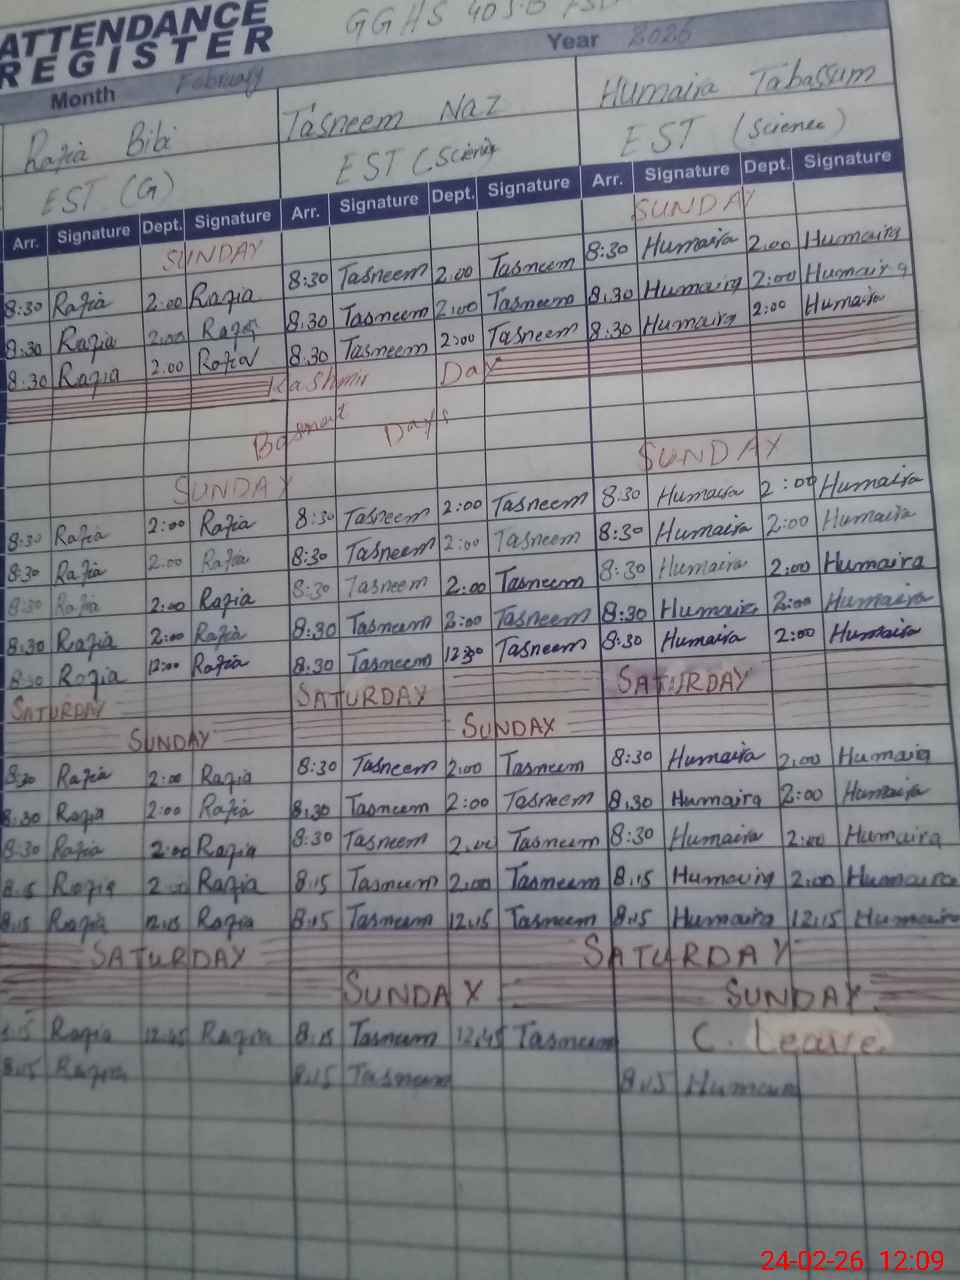 ATTENDANCE
REGISTER
GGHS
Month February Year 2026
Razia Bibi Tasneem Naz Humaira Tabassum
EST (G) EST (Science EST (Science)
Arr. Signature Dept. Signature Arr. Signature Dept. Signature Arr. Signature Dept. Signature
SUNDAY SUNDAY
8:30 Razia 2:00 Razia 8:30 Tasneem 2.00 Tasneem 8:30 Humaira 2.00 Humaira
8:30 Razia 2:00 Razia 8.30 Tasneem 2:00 Tasneem 8.30 Humaira 2:00 Humaira
8.30 Razia 2.00 Razia 8.30 Tasneem 2:00 Tasneem 8:30 Humaira 2:00 Humaira
Kashmir Day
Basant Days
SUNDAY SUNDAY
8:30 Razia 2:00 Razia 8:30 Tasneem 2:00 Tasneem 8:30 Humaira 2:00 Humaira
8:30 Razia 2:00 Razia 8:30 Tasneem 2:00 Tasneem 8:30 Humaira 2:00 Humaira
8:30 Razia 2:00 Razia 8:30 Tasneem 2:00 Tasneem 8:30 Humaira 2:00 Humaira
8.30 Razia 2:00 Razia 8:30 Tasneem 2:00 Tasneem 8:30 Humaira 2:00 Humaira
8:30 Razia 12:00 Razia 8.30 Tasneem Tasneem 8:30 Humaira 2:00 Humaira
SATURDAY SATURDAY SATURDAY
SUNDAY SUNDAY
8:30 Razia 2:00 Razia 8:30 Tasneem 2.00 Tasneem 8:30 Humaira 2.00 Humaira
8:30 Razia 2:00 Razia 8.30 Tasneem 2:00 Tasneem 8.30 Humaira 2:00 Humaira
8:30 Razia 2:00 Razia 8:30 Tasneem 2.00 Tasneem 8:30 Humaira 2:00 Humaira
8.15 Razia 2:00 Razia 8.15 Tasneem 2.00 Tasneem 8.15 Humaira 2:00 Humaira
8.15 Razia 12.15 Razia 8.15 Tasneem 12.15 Tasneem 8.15 Humaira 12.15 Humaira
SATURDAY SATURDAY
SUNDAY SUNDAY
8.15 Razia 12.45 Razia 8.15 Tasneem 12.45 Tasneem C. Leave
8.15 Razia 8.15 Tasneem 8.15 Humaira
24-02-26 12:09